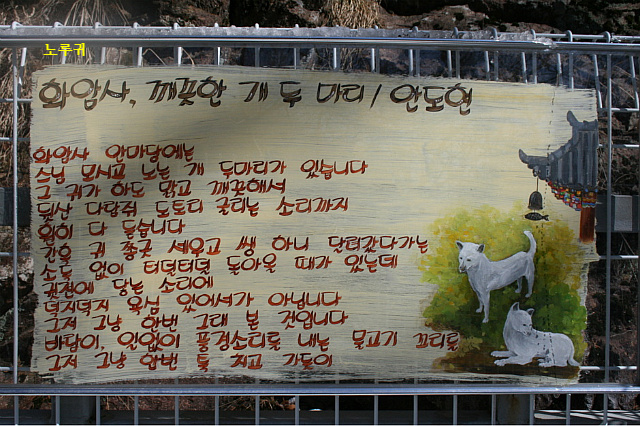 노루귀
화암사, 깨끗한 개 두 마리 / 안도현
화암사 안마당에는
스님 모시고 노는 개 두마리가 있습니다
그 귀가 하도 맑고 깨끗해서
뒷산 다람쥐 도토리 굴리는 소리까지
훤히 다 듣습니다
간혹 귀 쫑긋 세우고 쌩 하니 달려갔다가는
소득 없이 터덜터덜 돌아올 때가 있는데
귓전에 닿는 소리에
덕지덕지 욕심 있어서가 아닙니다
그저 그냥 한번 그래 본 것입니다
바람이, 일없이 풍경소리를 내는 물고기 꼬리를
그저 그냥 한번 툭 치고 가듯이